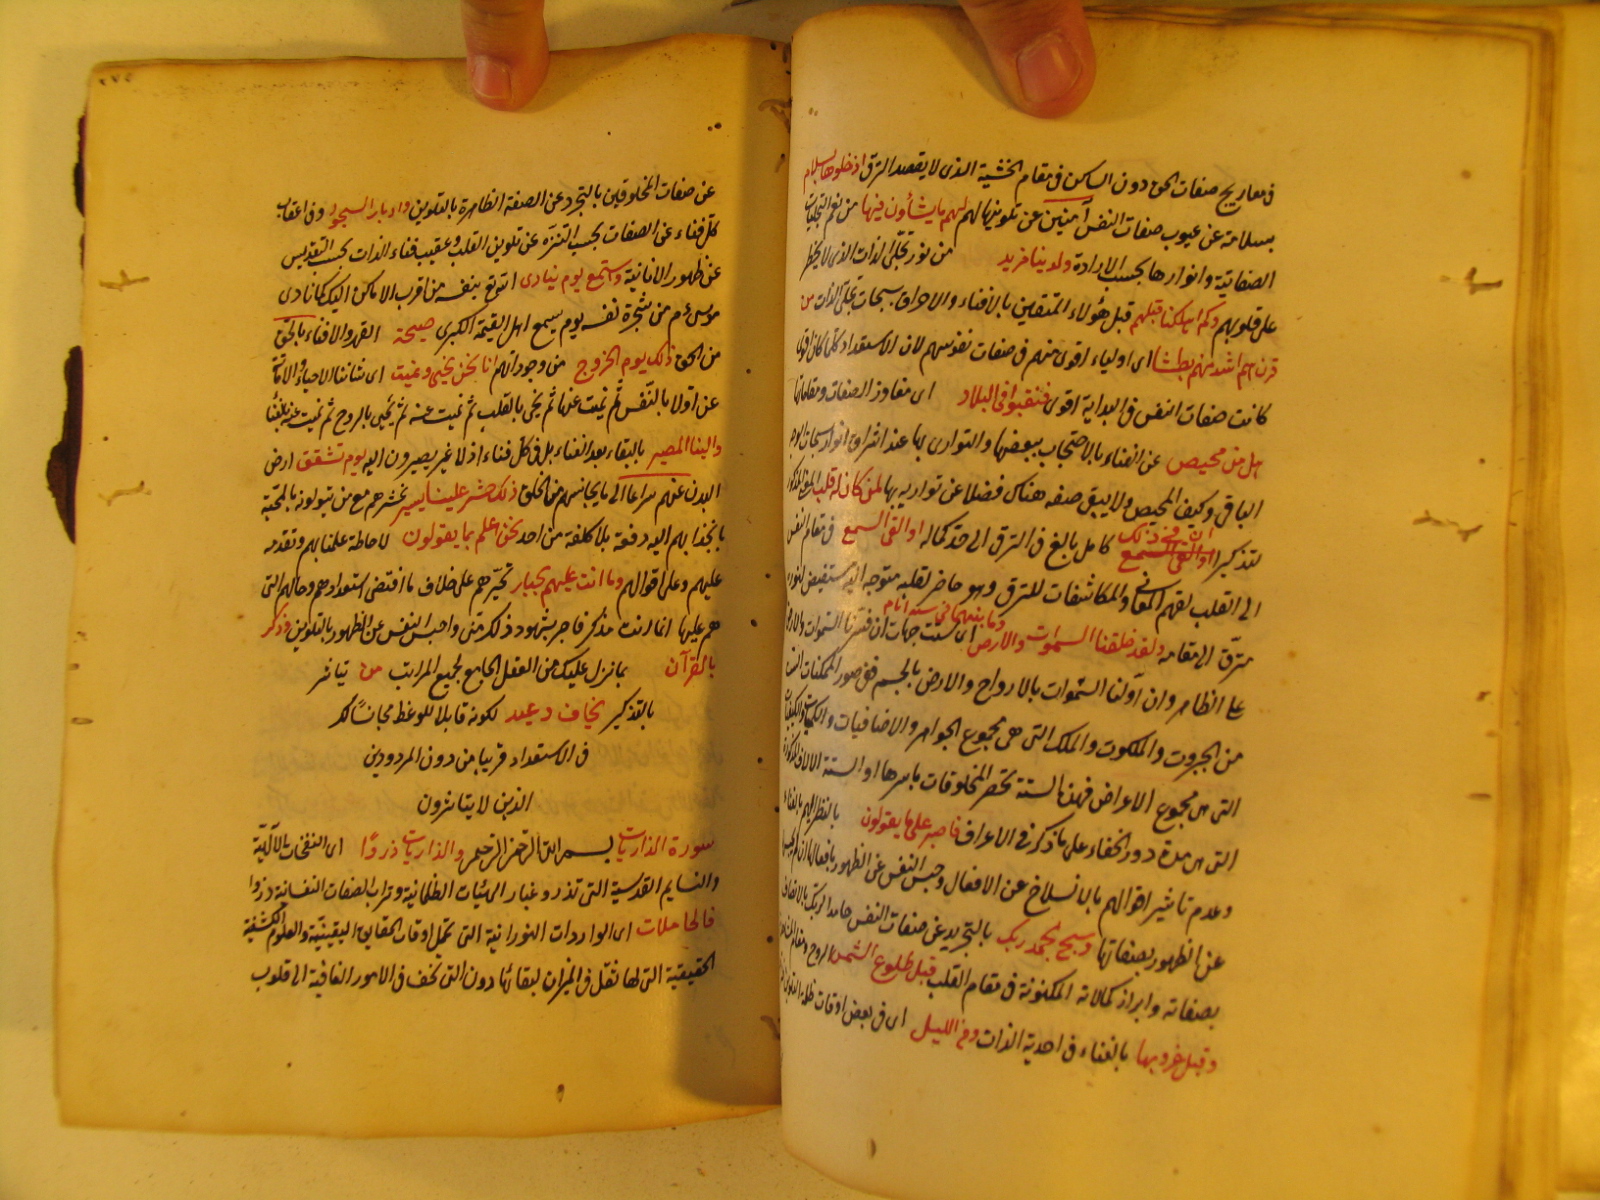 فى معاريج صفات الحق دون الساكن فى مقام الخشية الذى لا يقصد الترقى ادخلوها بسلام
بسلامة عن عيوب صفات النفس آمنين عن تلويناتها لهم لهم ما يشاؤن فيها من نعم التجليات
الصفاتية وانوارها بحسب الارادة ولدينا مزيد من نور تجلى الذات الذى لا يخطر
على قلوبهم وكم اهلكنا قبلهم قبل هؤلاء المتقين بالافناء والاحراق بسبحات تجلى الذات من
قرن هم اشد منهم بطشا اى اولياء اقوى منهم فى صفات نفوسهم لان الاستعداد كلما كان اقوى
كانت صفات النفس فى البداية اقوى فنقبوا فى البلاد اى مفاوز الصفات ومقاماتها
هل من محيص عن الفناء بالاحتجاب ببعضها والتوارى بها عند اشراق انوار سبحات الوجه
الباقى وكيف المحيص ولا يبقى صفة هناك فضلا عن تواريه بها لمن كان له قلب
ان فى ذلك
لتذكيرا كامل بالغ فى الترقى الى حد كماله او القى السمع فى مقام النفس
الى القلب لفهم المعانى والمكاشفات للترقى وهو حاضر لقلبه متوجه اليه مستفيض لنوره
مترق الى مقامه ولقد خلقنا السموات والارض وما بينهما فى ستة ايام اى ست جهات ان فسرنا السموات والارض
على الظاهر وان اولنا السموات بالارواح والارض بالجسم فهى صور الممكنات الست
من الجبروت والملكوت والملك التى هى مجموع الجواهر والاضافيات والكميات والكيفيات
التى هى مجموع الاعراض فهذه الستة تحصر المخلوقات باسرها او الستة الآلاف المذكورة
التى هى مدة دور الخفاء على ما ذكر فى الاعراف فاصبر على ما يقولون بالنظر اليهم بالفناء
وعدم تاثير اقوالهم بالانسلاخ عن الافعال وحبس النفس عن الظهور بافعالها
عن الظهور بصفاتها وسبح بحمد ربك بالتجريد عن صفات النفس حامدا لربك بالاتصاف
بصفاته وابراز كمالاته المكنونة فى مقام القلب قبل طلوع الشمس الروح ومقام المشاهدة
وقبل غروبها بالفناء فى احدية الذات ومن الليل اى فى بعض اوقات ظلمة التلوين
عن صفات المخلوقين بالتجرد عن الصفة الظاهرة بالتلوين وادبار السجود وفى اعقاب
كل فناء عن الصفات بحسب التنزه عن تلوين القلب وعقيب فناء الذات بحسب التقديس
عن ظهور الانانية واستمع يوم ينادى بنفسه من اقرب الاماكن اليك كما نادى
موسى من شجرة نفسه يوم يسمع اهل القيمة الكبرى صيحة القهر والافناء بالحق
من الحق ذلك يوم الخروج من وجوداتهم انا نحن نحيى ونميت اى شاننا الاحياء والاماتة
عن اولا بالنفس ثم نميت عنها ثم نحيى بالقلب ثم نميت عنه ثم نحيى بالروح ثم نميت عنه بالفناء
والينا المصير بالبقاء بعد الفناء بل فى كل فناء اذ لا غير يصيرون اليه يوم تشقق ارض
البدن عنهم سراعا الى ما يجانسهم من الخلق ذلك حشر علينا يسير نحشرهم مع من يتولونه بالمحبة
بانجذابهم اليه دفعة بلا كلفة من احد نحن اعلم بما يقولون لاحاطة علمنا بهم وتقدمه
عليهم وعلى اقوالهم وما انت عليهم بجبار تجبرهم على خلاف ما اقتضى استعدادهم وحالهم التى
هم عليها انما انت مذكر فاصبر بشهود ذلك منى واحبس النفس عن الظهور بالتلوين وذكر
بالقرآن بما نزل عليك من العقل الجامع لجميع المراتب من يتاثر
بالتذكير يخاف وعيد لكونه قابلا للوعظ مجانسا لك
فى الاستعداد قريبا من دون المردودين
الذين لا يتاثرون
سورة الذاريات بسم الله الرحمن الرحيم والذاريات ذروا اى النفخات الالهية
والنسايم القدسية التى تذرو غبار الهيئات الظلمانية وتراب الصفات النفسانية ذروا
فالحاملات اى الواردات النورانية التى تحمل اوقات الحقايق اليقينية والعلوم الكشفية
الحقيقية التى لها ثقل فى الميزان لبقائها دون التى تخف فى الامور الفانية الى قلوب